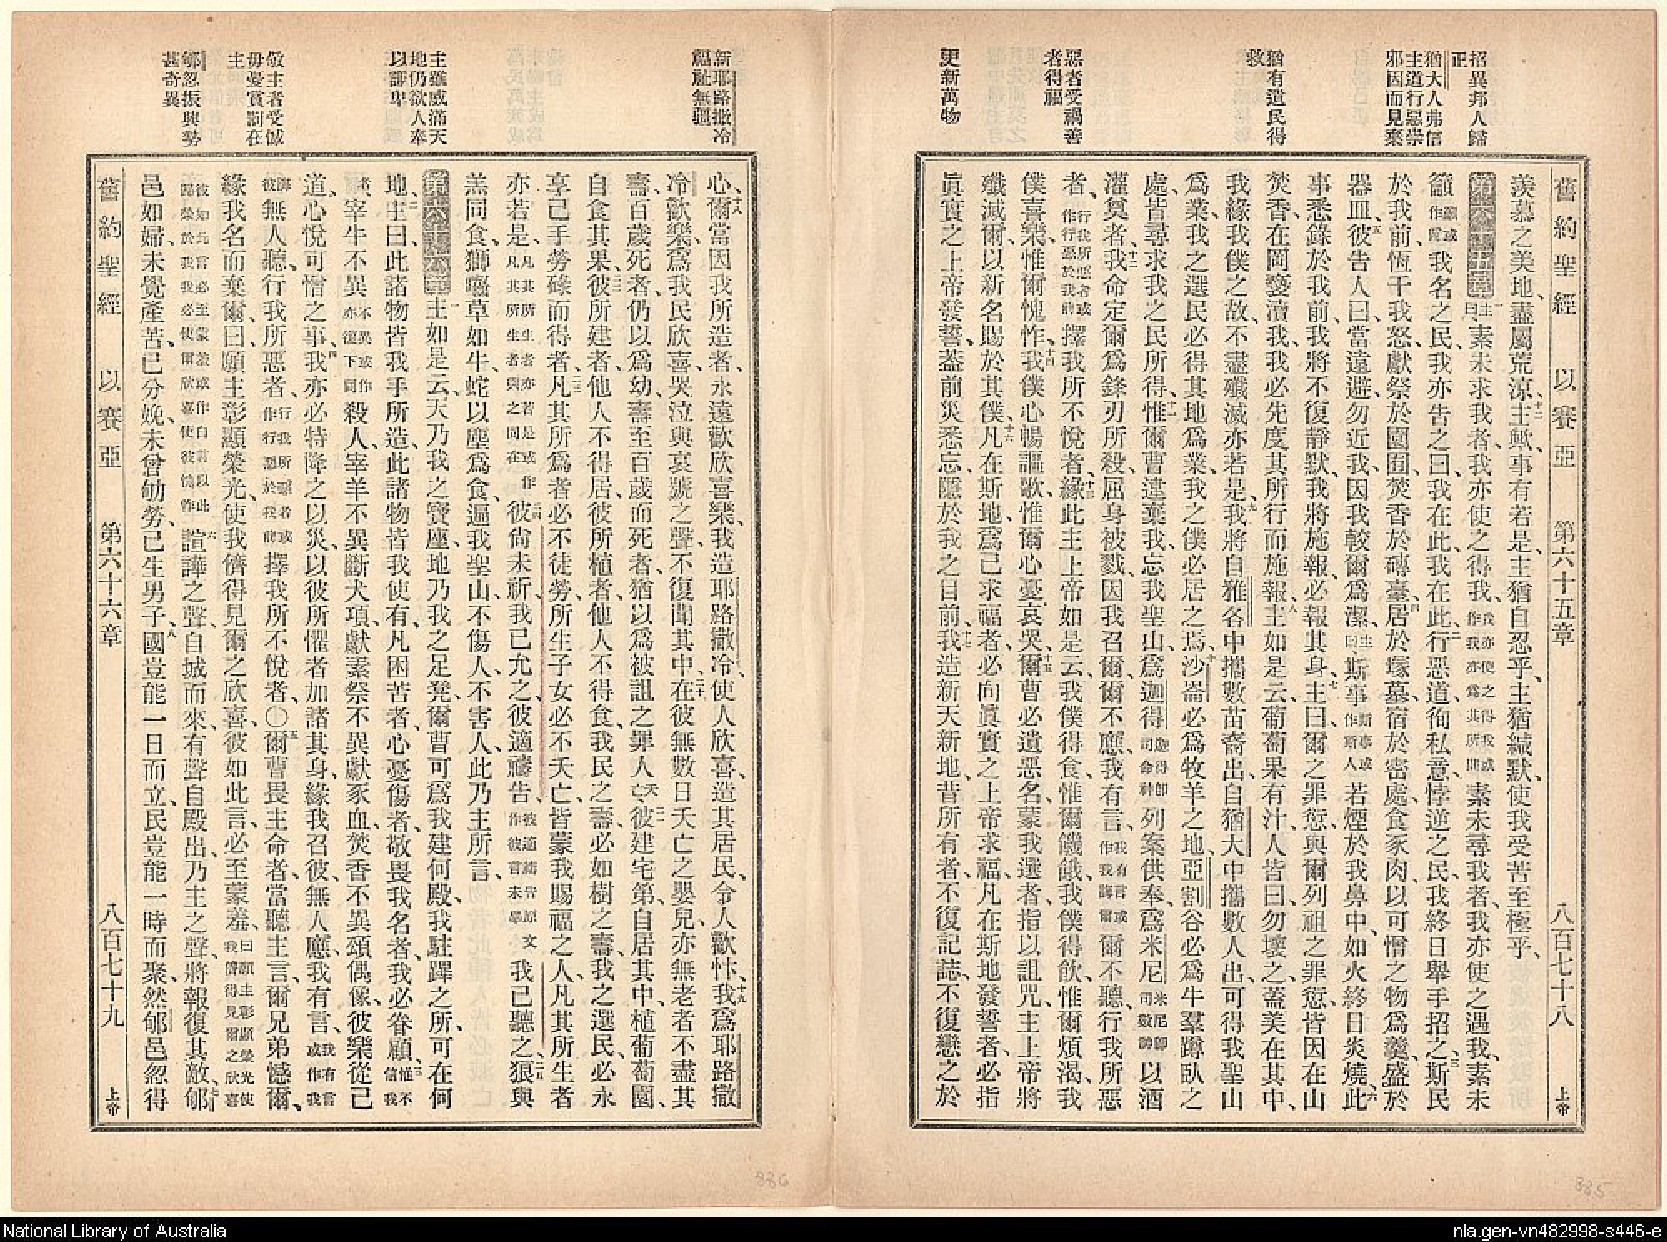 招異邦人歸
正
猶大人弗信
主道行惡崇
邪因而見棄
猶有遺民得
救
惡者受禍善
者得福
更新萬物
舊約聖經 以賽亞 第六十五章 八百七十八 上帝
羨慕之美地、盡屬荒涼、十二主歟、事有若是、主猶自忍乎、主猶緘默、使我受苦至極乎、
第六十五章 一主曰、素未求我者、我亦使之得我、我亦使之得我或作我亦爲其所問素未尋我者、我亦使之遇我、素未
籲籲或作稱我名之民、我亦告之曰、我在此、我在此、二行惡道、徇私意、悖逆之民、我終日舉手招之、三斯民
於我前、恆干我怒、獻祭於園囿、焚香於磚臺、四居於塚墓、宿於密處、食豕肉、以可憎之物爲羹、盛於
器皿、五彼告人曰、當遠避、勿近我、因我較爾爲潔、主曰、斯事斯事或作斯人若煙於我鼻中、如火終日炎燒、六此
事悉錄於我前、我將不復靜默、我將施報、必報其身、七主曰、爾之罪愆、與爾列祖之罪愆、皆因在山
焚香、在岡褻瀆我、我必先度其所行而施報、八主如是云、葡萄果有汁、人皆曰、勿壞之、蓋美在其中、
我緣我僕之故、不盡殲滅、亦若是、九我將自雅各中攜數苗裔出、自猶大中攜數人出、可得我聖山
爲業、我之選民、必得其地爲業、我之僕必居之焉、十沙崙必爲牧羊之地、亞割谷必爲牛羣蹲臥之
處、皆尋求我之民所得、十一惟爾曹違棄我、忘我聖山、爲迦得迦得卽司命神列案供奉、爲米尼米尼卽司數神以酒
灌奠者、十二我命定爾爲鋒刃所殺、屈身被戮、因我召爾、爾不應、我有言我有言或作我誨爾爾不聽、行我所惡
者、行我所惡者或作行惡於我前擇我所不悅者、十三緣此主上帝如是云、我僕得食、惟爾饑餓、我僕得飲、惟爾煩渴、我
僕喜樂、惟爾愧怍、十四我僕心暢謳歌、惟爾心憂哀哭、十五爾曹必遺惡名、蒙我選者、指以詛咒、主上帝將
殲滅爾、以新名賜於其僕、十六凡在斯地爲己求福者、必向眞實之上帝求福、凡在斯地發誓者、必指
眞實之上帝發誓、蓋前災悉忘、隱於我之目前、十七我造新天新地、昔所有者、不復記誌、不復戀之於
新耶路撒冷
福祉無疆
主雖威滿天
地仍欲人奉
以謙卑
敬主者受慽
毋憂賞罰在
主
郇忽振興勢
甚奇異
心、十八爾當因我所造者、永遠歡欣喜樂、我造耶路撒冷、使人欣喜、造其居民、令人歡忭、十九我爲耶路撒
冷歡樂、爲我民欣喜、哭泣與哀號之聲、不復聞其中、二十在彼無數日夭亡之嬰兒、亦無老者不盡其
壽、百歲死者、仍以爲幼、壽至百歲而死者、猶以爲被詛之罪人夭亡、二一彼建宅第、自居其中、植葡萄園、
自食其果、二二彼所建者、他人不得居、彼所植者、他人不得食、我民之壽、必如樹之壽、我之選民、必永
享己手勞碌而得者、二三凡其所爲者、必不徒勞、所生子女、必不夭亡、皆蒙我賜福之人、凡其所生者
亦若是、凡其所生者亦若是或作凡其所生者與之同在二四彼尚未祈、我已允之、彼適禱告、我已聽之、二五狼與
羔同食、獅囓草如牛、蛇以塵爲食、遍我聖山、不傷人、不害人、此乃主所言、
第六十六章 一主如是云、天乃我之寶座、地乃我之足凳、爾曹可爲我建何殿、我駐蹕之所、可在何
地、二主曰、此諸物皆我手所造、此諸物皆我使有、凡困苦者、心憂傷者、敬畏我名者、我必眷顧、三惟不信我
者、宰牛不異不異或作亦復下同殺人、宰羊不異斷犬項、獻素祭不異獻豕血、焚香不異頌偶像、彼樂從己
道、心悅可憎之事、四我亦必特降之以災、以彼所懼者加諸其身、緣我召彼、無人應、我有言我有言或作我
誨彼無人聽、行我所惡者行我所惡者或作行惡於我前擇我所不悅者、〇五爾曹畏主命者、當聽主言、爾兄弟憾爾、
緣我名而棄爾、曰、願主彰顯榮光、使我儕得見爾之欣喜、彼如此言、必至蒙羞、
六諠譁之聲自城而來、有聲自殿出、乃主之聲、將報復其敵、七郇
邑如婦、未覺產苦、已分娩、未曾劬勞、已生男子、八國豈能一日而立、民豈能一時而聚、然郇邑忽得
舊約聖經 以賽亞 第六十六章 八百七十九 上帝
385
386
National Library of Australia
nla.gen-vn482998-s446-e